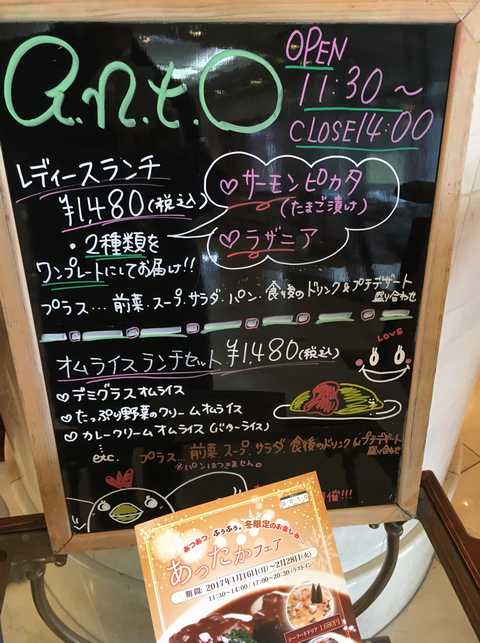 a.n.t.O
OPEN
11:30～
CLOSE14:00
レディースランチ
¥1,480(税込)
・2種類を
ワンプレートにしてお届け!!
♡サーモンピカタ
(たまご漬け)
♡ラザニア
プラス…前菜・スープ・サラダ・パン・食後のドリンク&プチデザート
盛り合わせ
オムライスランチセット ¥1,480(税込)
LOVE
♡デミグラスオムライス
♡たっぷり野菜のクリームオムライス
♡カレークリームオムライス(バターライス)
etc.
プラス…前菜・スープ・サラダ・食後のドリンク&プチデザート
盛り合わせ
※パンはつきません。
催!!!
あつあつ、ふぅふぅ。冬限定のお楽しみ
あったかフェア
期間:2017年1月16日(月)～2月28日(火)
11:30～14:00/17:00～20:30(ラストイン)
シーフードドリア 1,680円